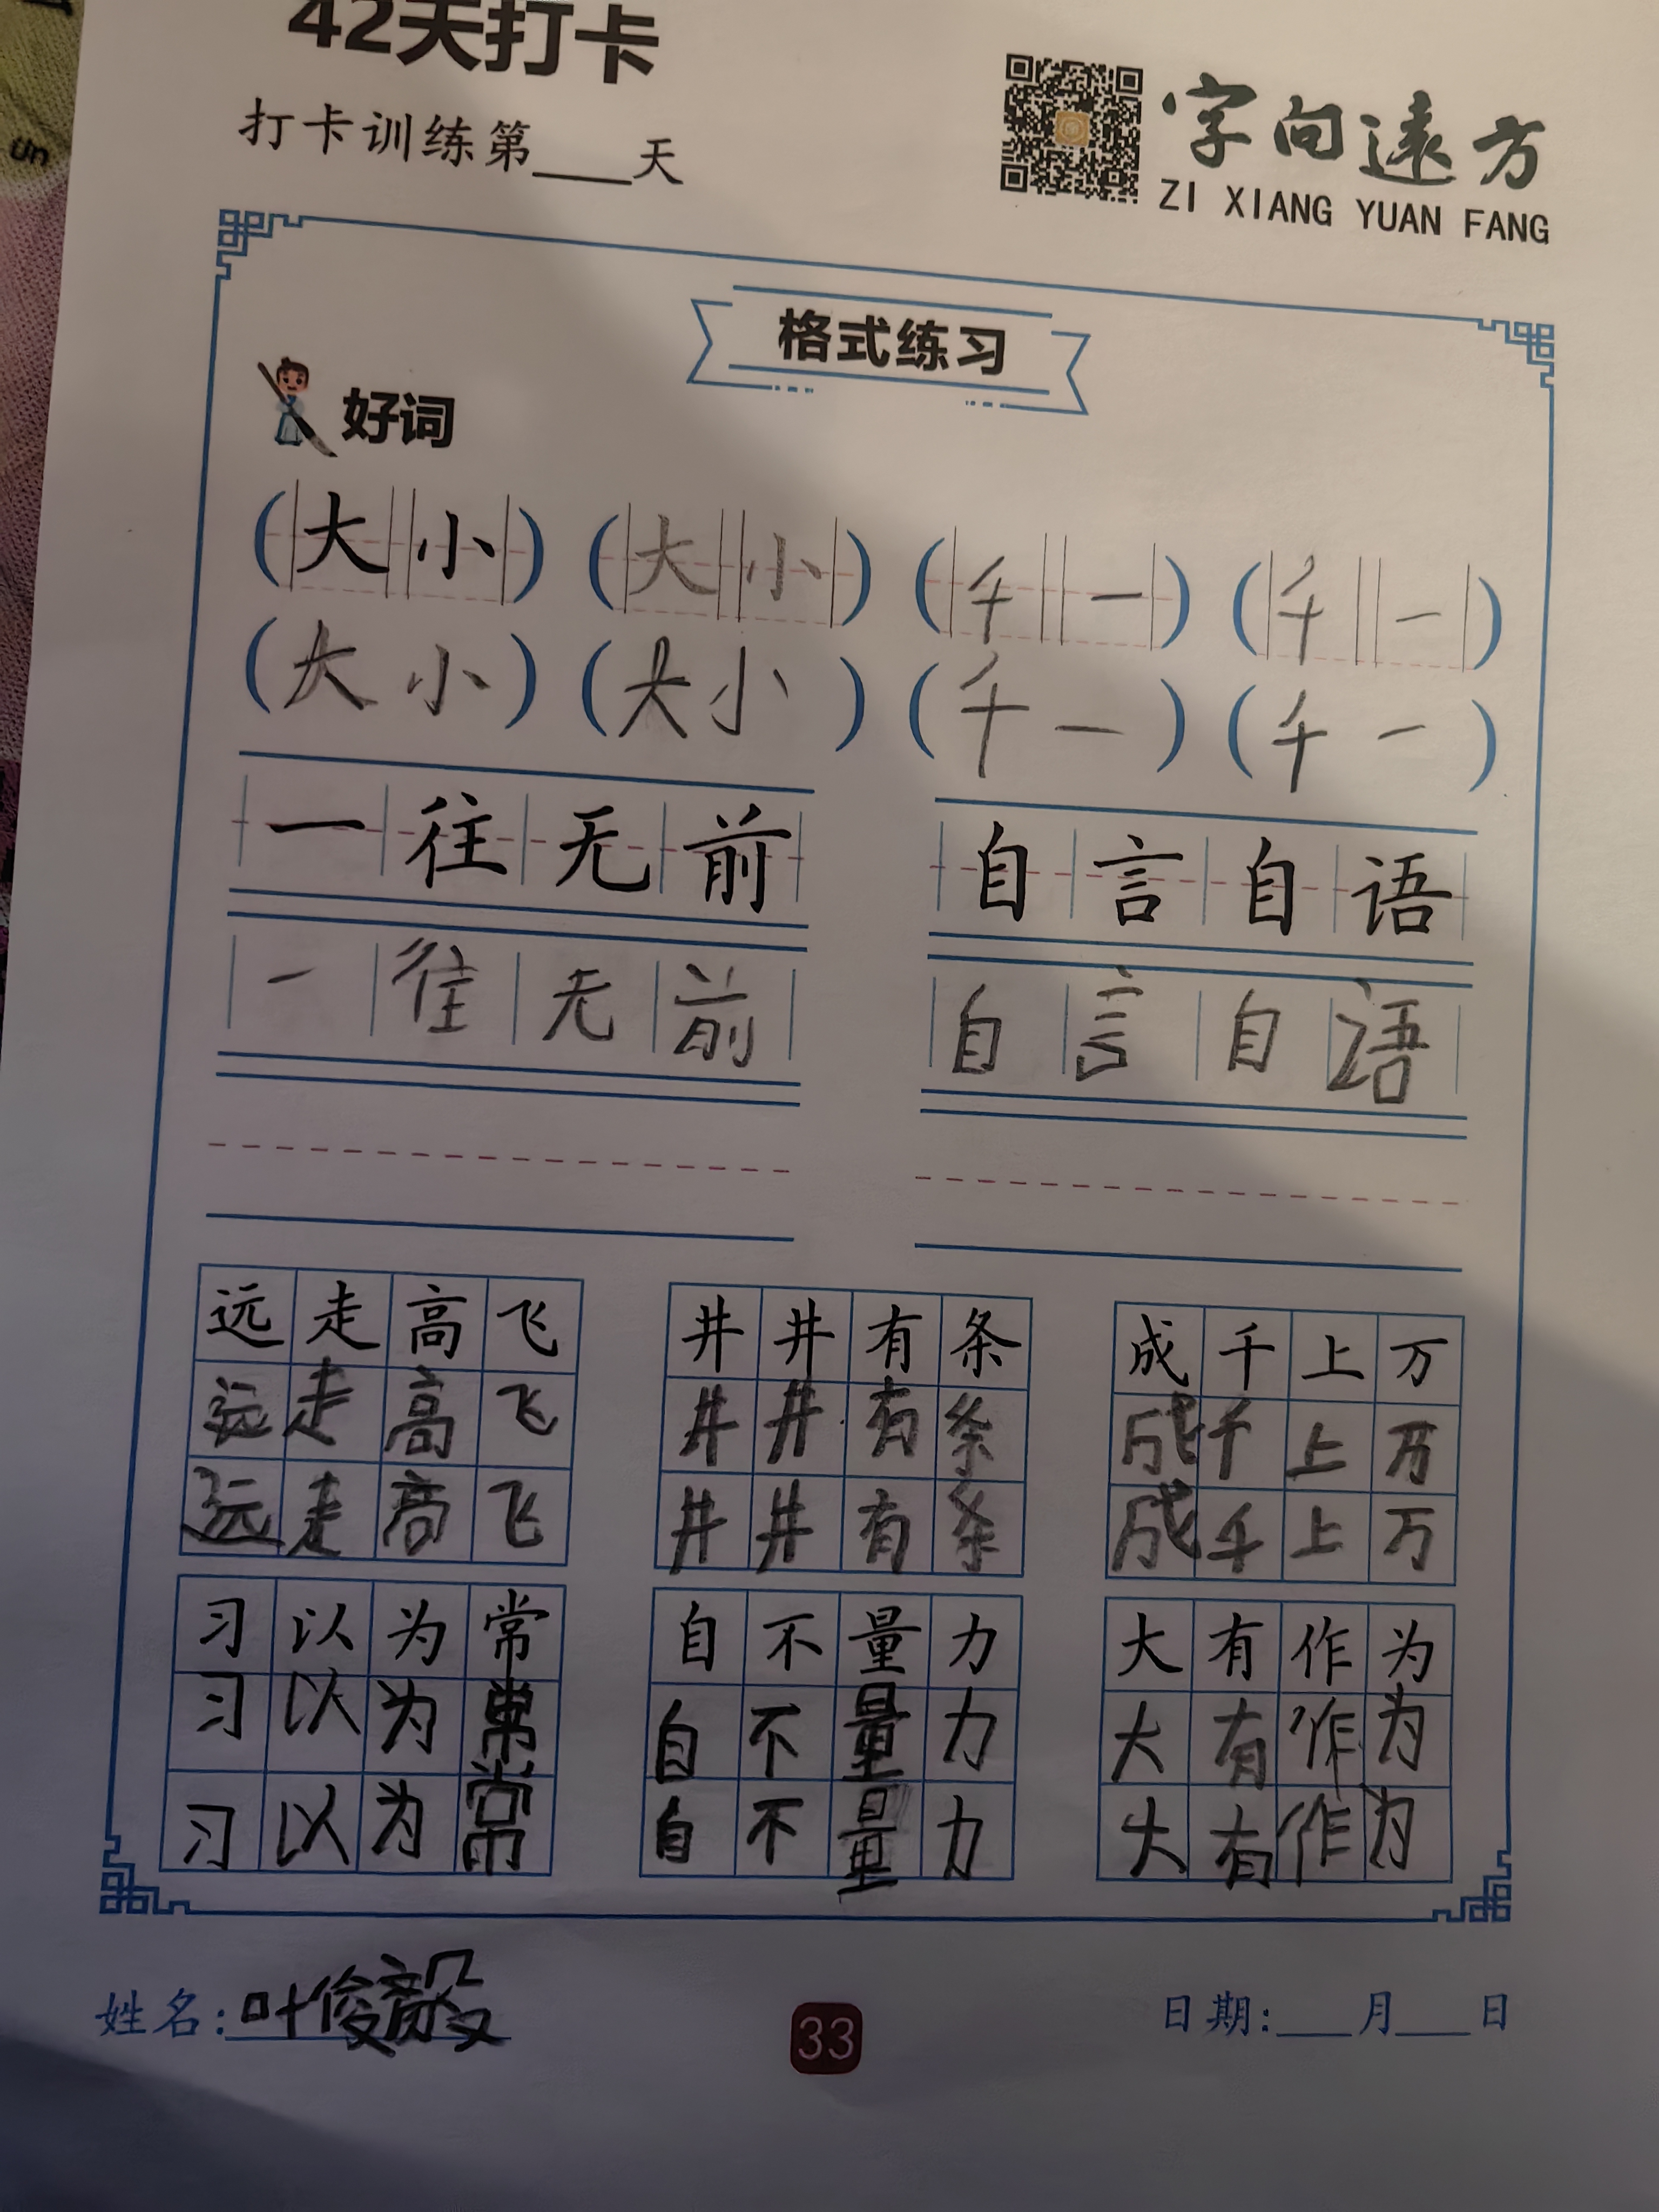 42天打卡
打卡训练第____天
字向遠方
ZI XIANG YUAN FANG
格式练习
好词
(大小) (大小) (千一) (千一)
(大小) (大小) (千一) (千一)
一往无前 自言自语
一往无前 自言自语
远走高飞 井井有条 成千上万
远走高飞 井井有条 成千上万
远走高飞 井井有条 成千上万
习以为常 自不量力 大有作为
习以为常 自不量力 大有作为
习以为常 自不量力 大有作为
姓名:叶俊
33
日期:___月___日